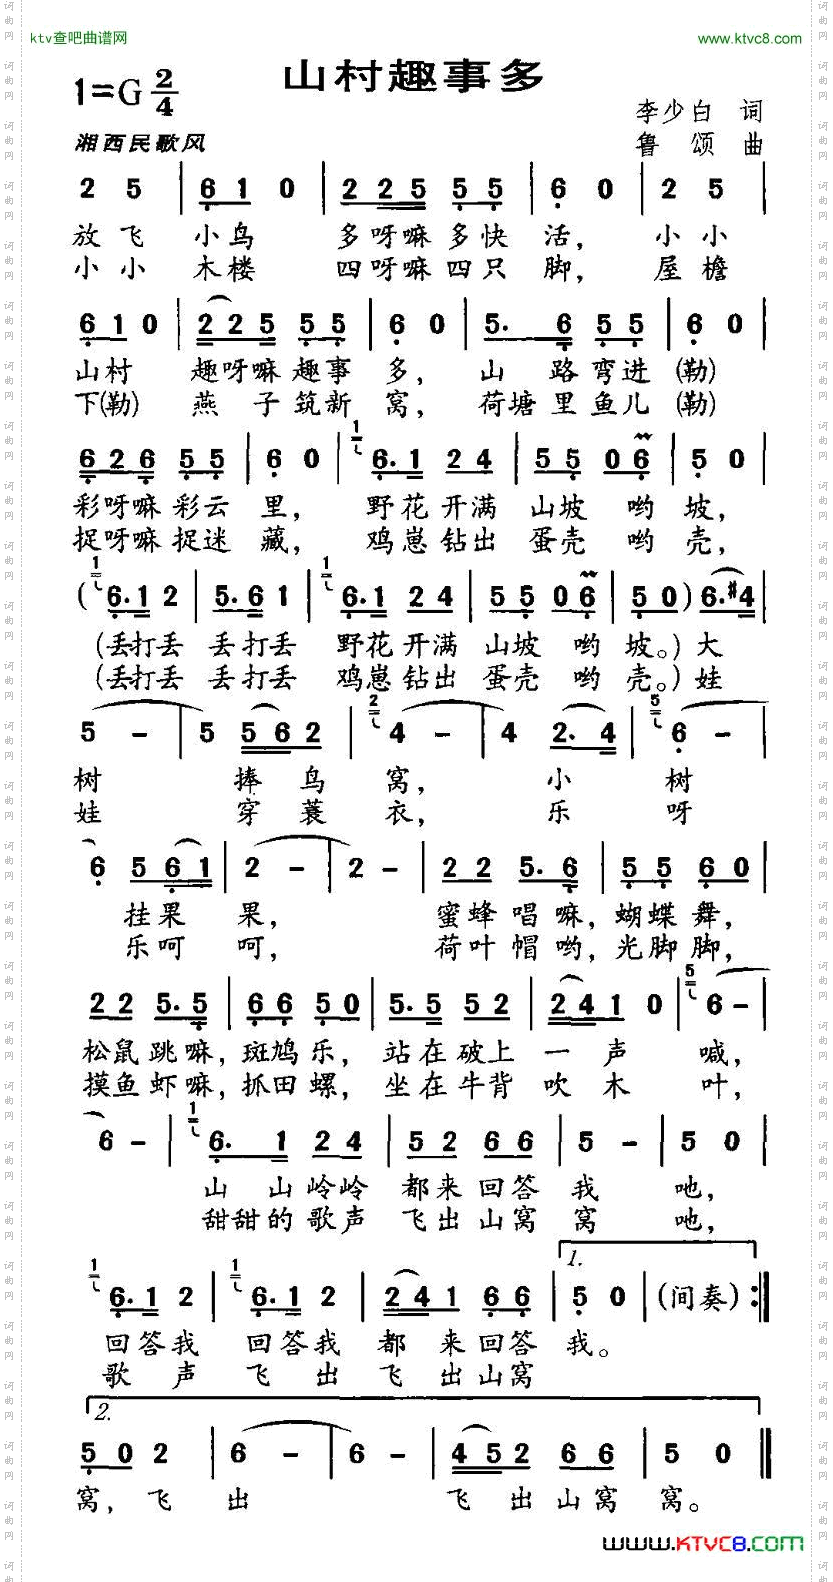 ktv查吧曲谱网
www.ktvc8.com
山村趣事多
1=G 2/4
李少白 词
湘西民歌风
鲁 颂 曲
2 5 | 6 1 0 | 2 2 5 5 5 | 6 0 | 2 5 |
放飞 小鸟 多呀嘛多快 活， 小小
小小 木楼 四呀嘛四只 脚， 屋檐
6 1 0 | 2 2 5 5 5 | 6 0 | 5. 6 5 5 | 6 0 |
山村 趣呀嘛趣事 多， 山 路弯进 (勒)
下(勒) 燕子筑新 窝， 荷塘里鱼儿 (勒)
6 2 6 5 5 | 6 0 | 1 6. 1 2 4 | 5 5 0 6 | 5 0 |
彩呀嘛彩云 里， 野花开满 山坡 哟 坡，
捉呀嘛捉迷 藏， 鸡崽钻出 蛋壳 哟 壳，
( 1 6. 1 2 | 5. 6 1 | 1 6. 1 2 4 | 5 5 0 6 | 5 0 ) 6. #4 |
(丢打丢 丢打丢 野花开满 山坡 哟 坡。) 大
(丢打丢 丢打丢 鸡崽钻出 蛋壳 哟 壳。) 娃
5 - | 5 5 6 2 | 2 4 - | 4 2. 4 | 5 6 - |
树 捧鸟 窝， 小 树
娃 穿蓑 衣， 乐 呀
6 5 6 1 | 2 - | 2 - | 2 2 5. 6 | 5 5 6 0 |
挂果 果， 蜜蜂唱嘛，蝴蝶舞，
乐呵 呵， 荷叶帽哟，光脚脚，
2 2 5. 5 | 6 6 5 0 | 5. 5 5 2 | 2 4 1 0 | 5 6 - |
松鼠跳嘛，斑鸠乐， 站在破上 一声 喊，
摸鱼虾嘛，抓田螺， 坐在牛背 吹木 叶，
6 - | 1 6. 1 2 4 | 5 2 6 6 | 5 - | 5 0 |
山山岭岭 都来回答 我 吔，
甜甜的歌声 飞出山窝 窝 吔，
1.
1 6. 1 2 | 1 6. 1 2 | 2 4 1 6 6 | 5 0 | (间奏) :||
回答我 回答我 都来回答 我。
歌声 飞出 飞出山窝
2.
5 0 2 | 6 - | 6 - | 4 5 2 6 6 | 5 0 ||
窝， 飞 出 飞出山窝 窝。
www.KTVC8.com